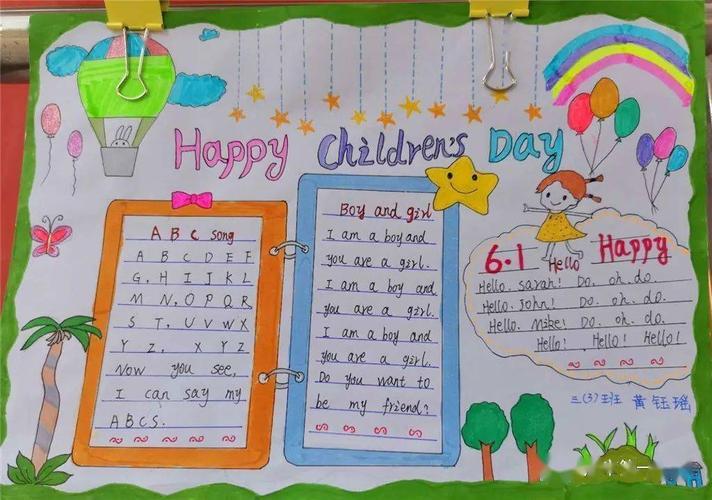 Happy Children's Day
A B C Song
A B C D E F
G, H I J K L
M N, O P Q R
S T, U V W X
Y Z, X Y Z
Now you see,
I can say my
A B C S.
Boy and girl
I am a boy and
you are a girl.
I am a boy and
you are a girl.
I am a boy and
you are a girl.
Do you want to
be my friend?
6.1 Hello Happy
Hello. Sarah! Do. oh. do.
Hello. John! Do. oh. do.
Hello. Mike! Do. oh. do.
Hello! Hello! Hello!
三(3)班 黄钰瑶